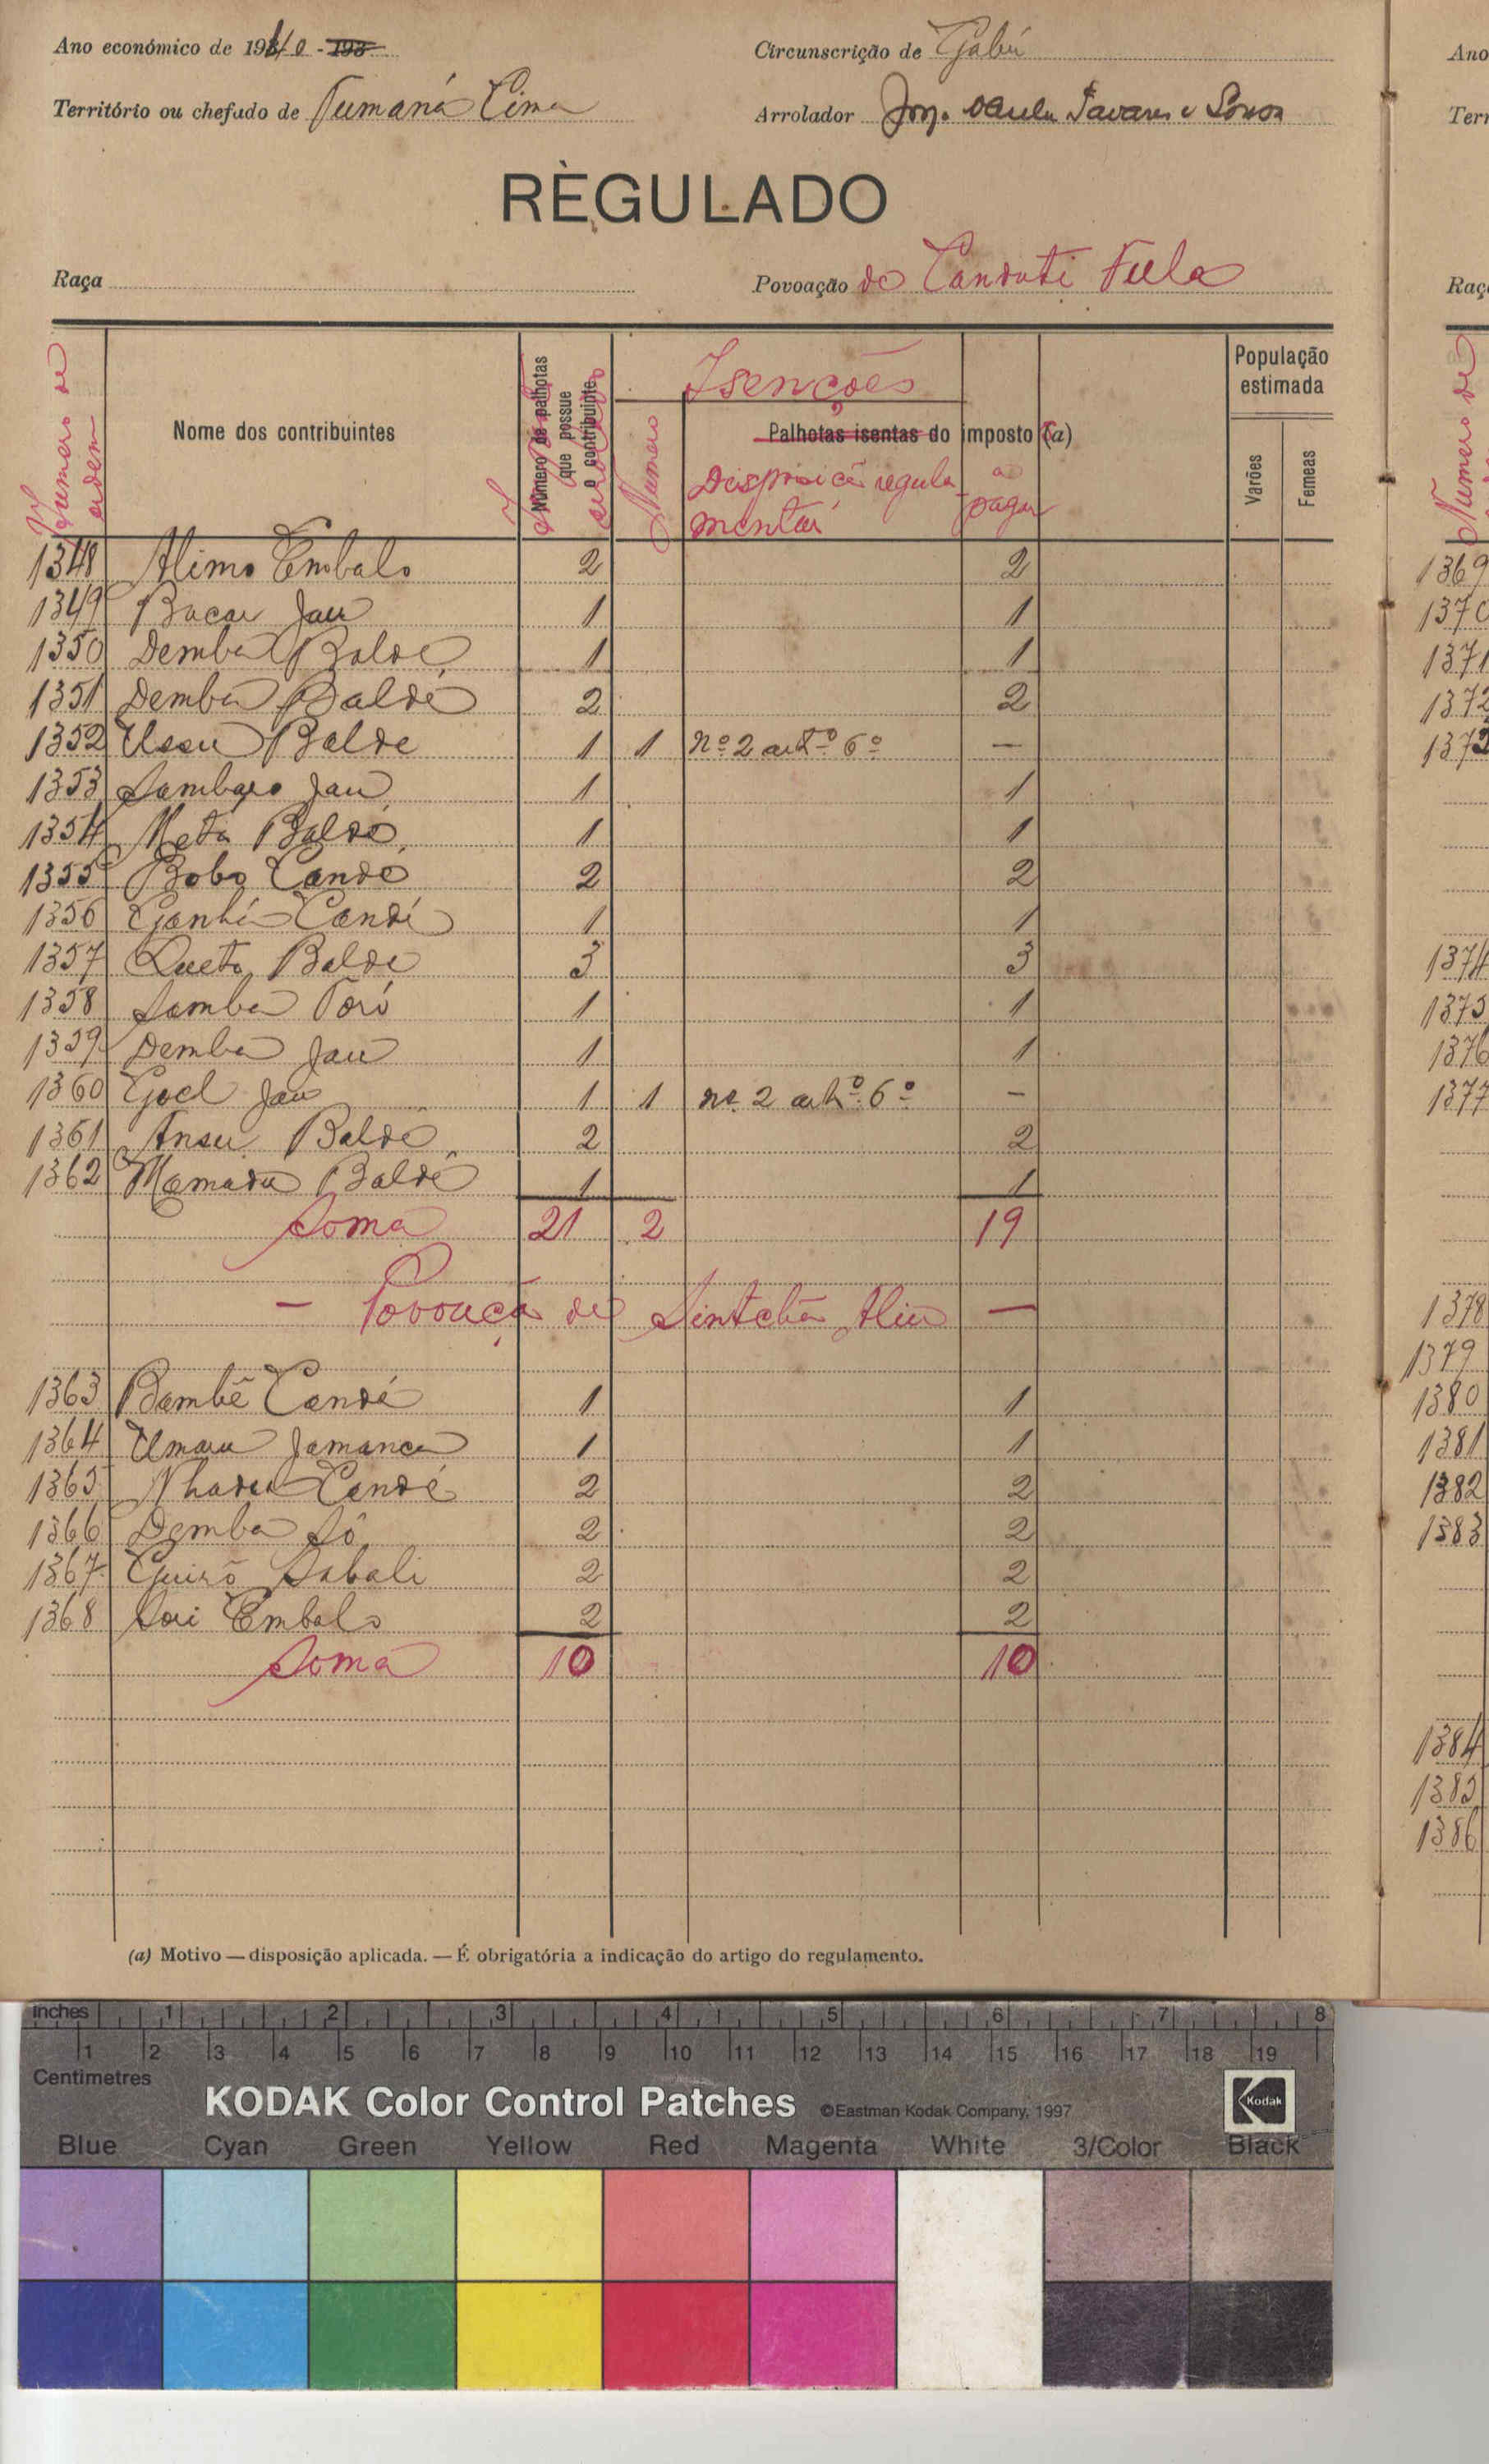 Ano económico de 1940 - 193
Circunscrição de Gabú
Território ou chefado de Tumaná Cima
Arrolador Tavares e Sousa
RÈGULADO
Raça
Povoação de Canduti Fula
Numero de ordem
Nome dos contribuintes
Número de palhotas que possue o contribuinte
Isenções
Palhotas isentas do imposto (a)
Numero
Disposicã regula-
mentar
a pagar
População estimada
Varões
Femeas
1348 Alimo Embalo 2 2
1349 Bacar Jau 1 1
1350 Demba Balde 1 1
1351 Demba Baldé 2 2
1352 Ussu Balde 1 1 nº 2 artº 6º —
1353 Sambaro Jau 1 1
1354 Neta Baldé 1 1
1355 Bobo Candé 2 2
1356 Ganhi Candé 1 1
1357 Queta Balde 3 3
1358 Samba Tori 1 1
1359 Demba Jau 1 1
1360 Goel Jau 1 1 nº 2 artº 6º -
1361 Ansu Baldé 2 2
1362 Mamadu Baldé 1 1
Soma 21 2 19
— Povoaçã de Sintchã Aliu —
1363 Bambê Candé 1 1
1364 Umaru Jamanca 1 1
1365 Nhadu Candé 2 2
1366 Demba Sô 2 2
1367 Guirõ Sabali 2 2
1368 Sori Embalo 2 2
Soma 10 10
(a) Motivo — disposição aplicada. — É obrigatória a indicação do artigo do regulamento.
Ano
Terr
Raç
Numero de
1369
1370
1371
1372
1373
1374
1375
1376
1377
1378
1379
1380
1381
1382
1383
1384
1385
1386
inches 1 2 3 4 5 6 7 8
1 2 3 4 5 6 7 8 9 10 11 12 13 14 15 16 17 18 19
Centimetres
KODAK Color Control Patches ©Eastman Kodak Company, 1997 Kodak
Blue Cyan Green Yellow Red Magenta White 3/Color Black